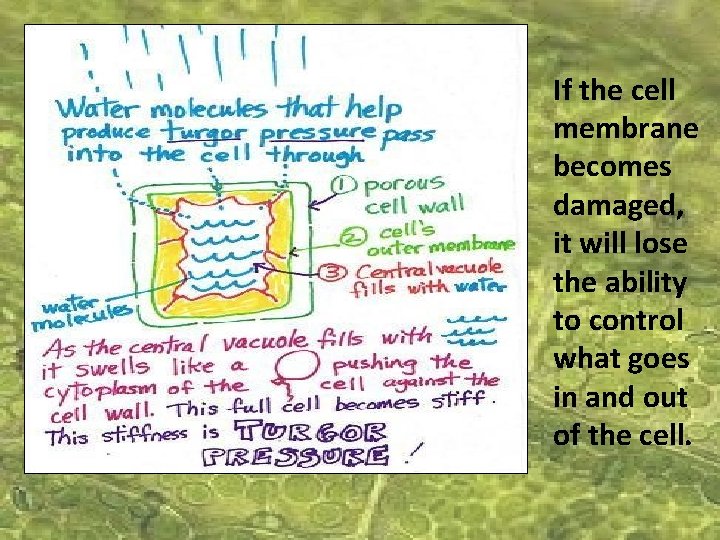 Water molecules that help
produce turgor pressure pass
into the cell through
① porous
cell wall
② cell's
outer membrane
③ Central vacuole
fills with water
water
molecules
As the central vacuole fills with
it swells like a pushing the
cytoplasm of the cell against the
cell wall. This full cell becomes stiff.
This stiffness is TURGOR
PRESSURE!
If the cell
membrane
becomes
damaged,
it will lose
the ability
to control
what goes
in and out
of the cell.